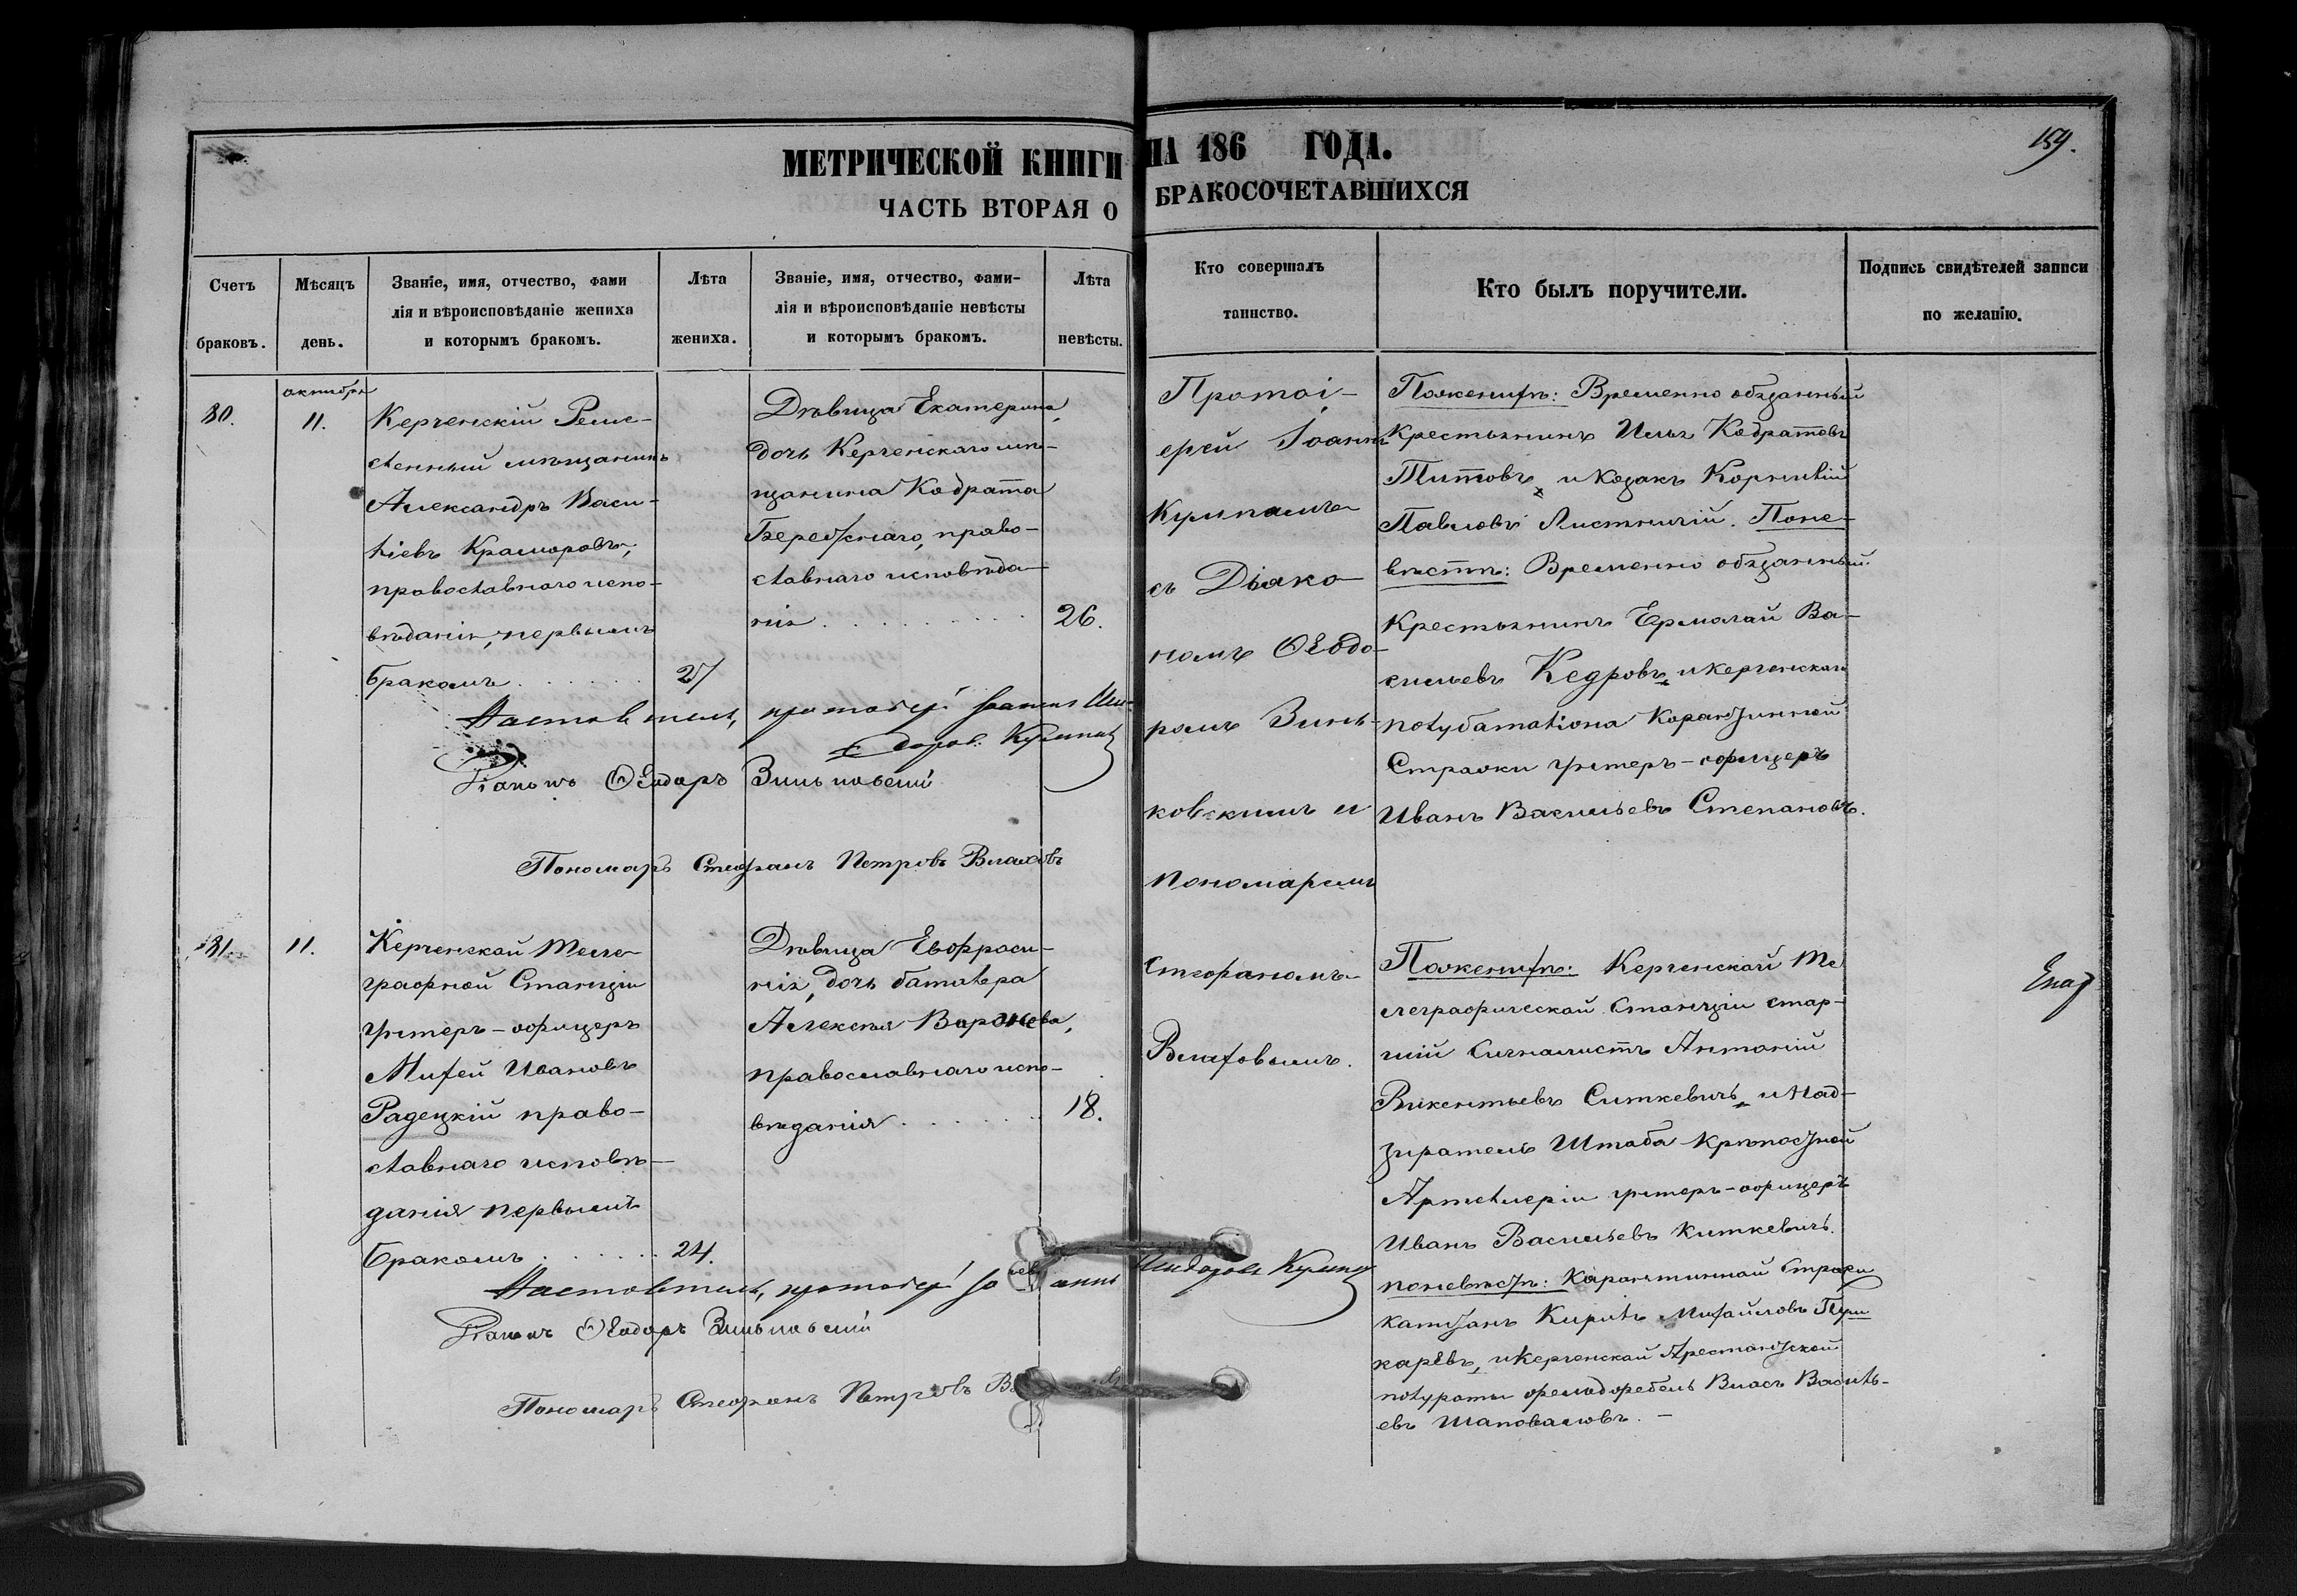 159.
МЕТРИЧЕСКОЙ КНИГИ НА 186 ГОДА.
ЧАСТЬ ВТОРАЯ О БРАКОСОЧЕТАВШИХСЯ
Счетъ
браковъ.
Мѣсяцъ
день.
Званіе, имя, отчество, фами
лія и вѣроисповѣданіе жениха
и которымъ бракомъ.
Лѣта
жениха.
Званіе, имя, отчество, фами-
лія и вѣроисповѣданіе невѣсты
и которымъ бракомъ.
Лѣта
невѣсты.
Кто совершалъ
таинство.
Кто былъ поручители.
Подпись свидѣтелей записи
по желанію.
80.
октября
11.
Керченскій Реме-
сленный мѣщанинъ
Александръ Васи-
ліевъ Краморовъ,
православнаго испо-
вѣданія, первымъ
бракомъ
27
Дѣвица Екатерина,
дочь Керченскаго мѣ-
щанина Кодрата
Бережнаго, право-
славнаго исповѣда-
нія
26.
Протоі-
ерей Іоаннъ
Кумпанъ
съ Діако
номъ Ѳеодо-
ромъ Зинь-
ковскимъ и
пономаремъ
Стефаномъ
Влаховымъ.
Пожених​ѣ: Временно обязанный
Крестьянинъ Илья Кодратовъ
Титовъ, и Козакъ Корнилій
Павловъ Листничій. Поне-
вѣстѣ: Временно обязанный
Крестьянинъ Ермолай Ва-
сильевъ Кедровъ, и Керченскаго
полубаталіона Карантинной
Стражи унтеръ-офицеръ
Иванъ Васильевъ Степановъ.
Настоятель, протоіерей Іоаннъ
Діаконъ Ѳеодоръ Зиньковскій
Пономарь Стефанъ Петровъ Влаховъ
81.
11.
Керченской Теле-
графной Станціи
унтеръ-офицеръ
Михей Ивановъ
Радецкій право-
славнаго исповѣ-
данія первымъ
бракомъ
24.
Дѣвица Евфроси-
нія, дочь баталера
Алексѣя Воронова,
православнаго испо-
вѣданія
18.
Пожених​ѣ: Керченской Те
леграфической Станціи стар-
шій Сигналистъ Антоній
Викентьевъ Ситкевичъ, и Над-
зиратель Штаба Крѣпостной
Артиллеріи унтеръ-офицеръ
Иванъ Васильевъ Киткевичъ.
поневѣстѣ: Карантинной Стражи
капитанъ Кирилъ Михайловъ Пуш
каревъ, и Керченской Арестантской
полуроты фельдфебель Власъ Василь-
евъ Шаповаловъ. —
Настоятель, протоіерей
Діаконъ Ѳеодоръ Зиньковскій
Пономарь Стефанъ Петровъ